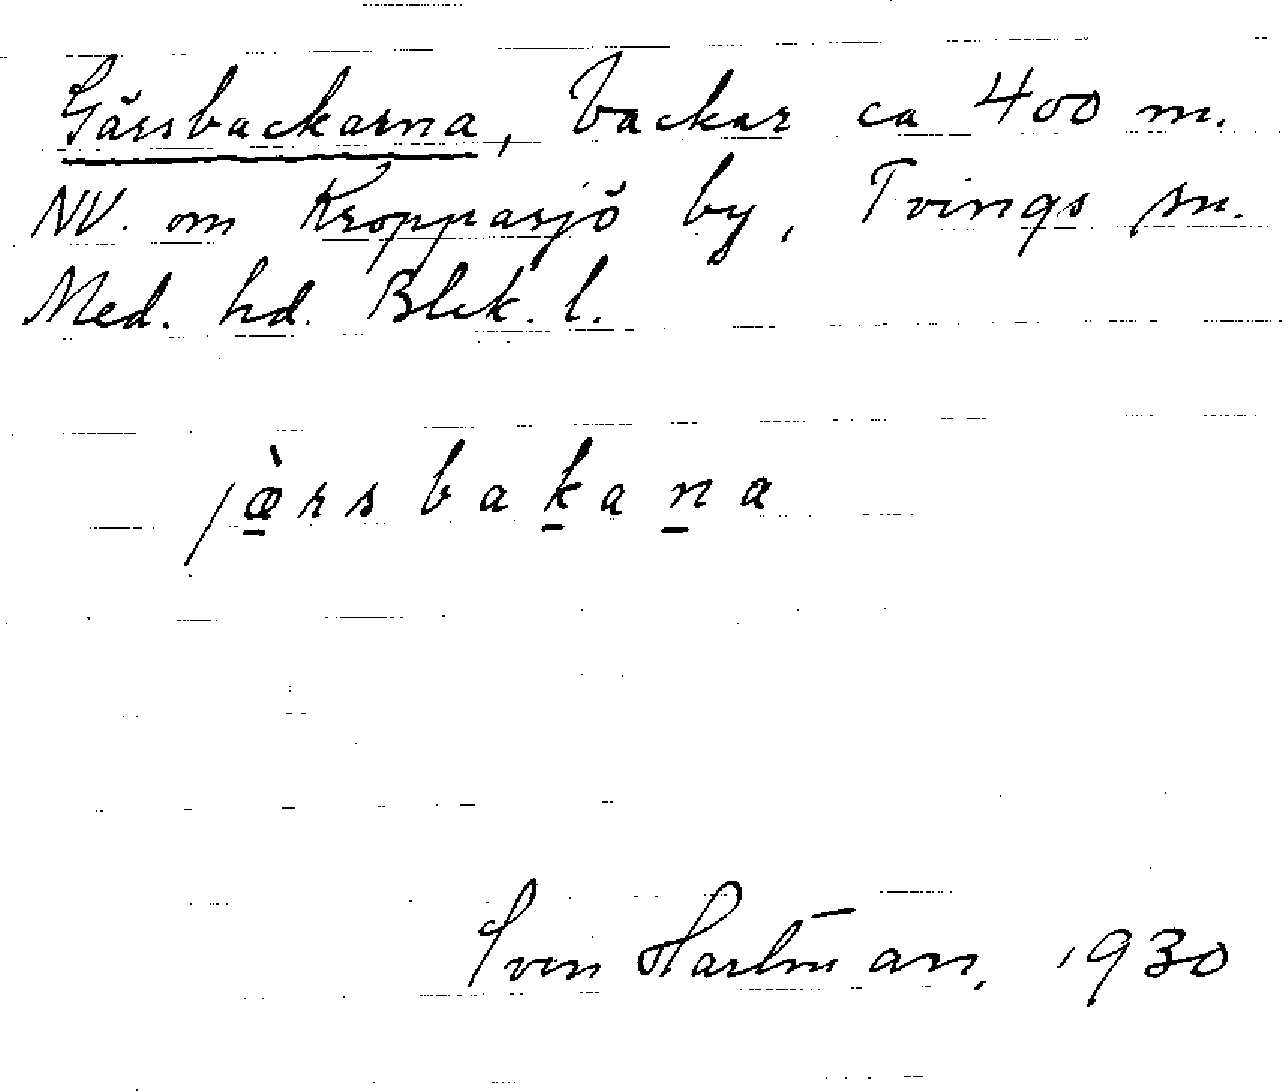 Gärsbackarna, backar ca 400 m.
NV. om Kroppasjö by, Tvings sn.
Med. hd. Blek. l.
jæ̀rsbakana
Sven Hartman, 1930